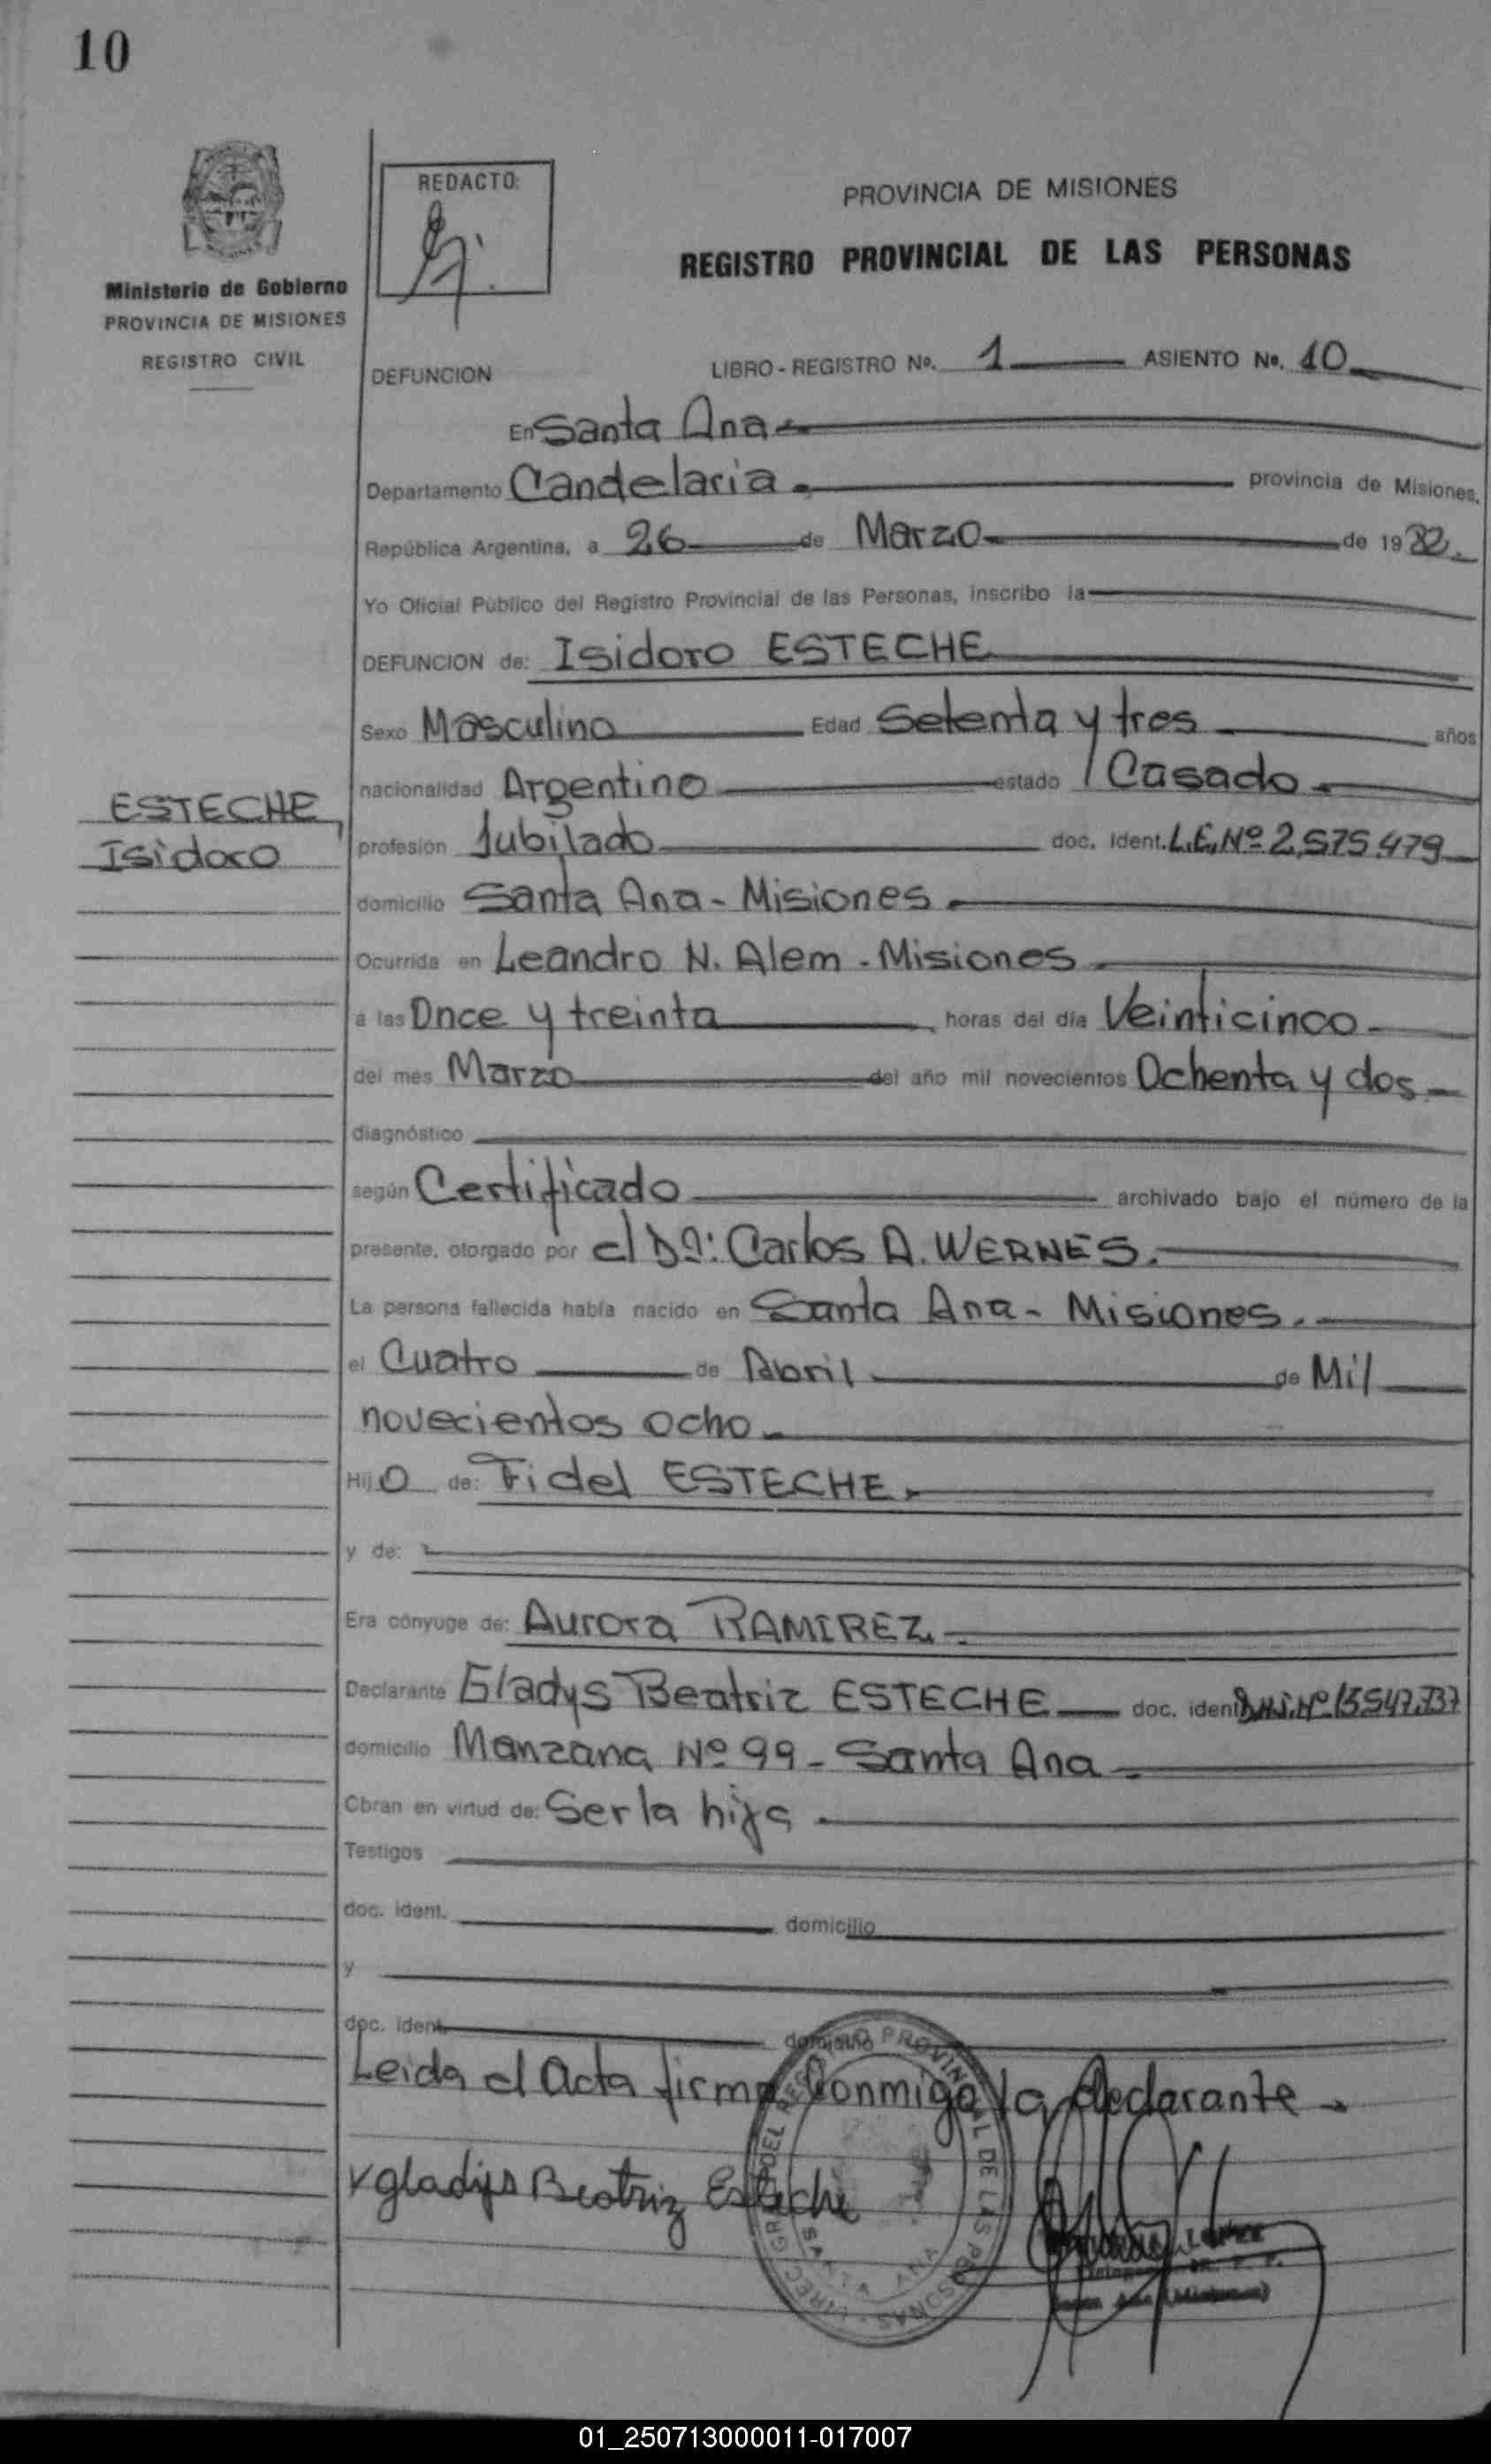 10
Ministerio de Gobierno
PROVINCIA DE MISIONES
REGISTRO CIVIL
REDACTO:
PROVINCIA DE MISIONES
REGISTRO PROVINCIAL DE LAS PERSONAS
DEFUNCION LIBRO - REGISTRO Nº. 1 ASIENTO Nº. 10
En Santa Ana
Departamento Candelaria provincia de Misiones,
República Argentina, a 26 de Marzo de 1982.
Yo Oficial Público del Registro Provincial de las Personas, inscribo la
DEFUNCION de: Isidoro ESTECHE
Sexo Masculino Edad Setenta y tres años
nacionalidad Argentino estado Casado
ESTECHE,
Isidoro
profesión Jubilado doc. Ident. L.E. Nº 2.575.479
domicilio Santa Ana - Misiones
Ocurrida en Leandro N. Alem - Misiones
a las Once y treinta horas del día Veinticinco
del mes Marzo del año mil novecientos Ochenta y dos
diagnóstico
según Certificado archivado bajo el número de la
presente, otorgado por el Dº: Carlos A. WERNES.
La persona fallecida había nacido en Santa Ana - Misiones.
el Cuatro de Abril de Mil
novecientos ocho
Hijo de: Fidel ESTECHE
y de:
Era cónyuge de: Aurora RAMIREZ
Declarante Gladys Beatriz ESTECHE doc. ident. D.N.I. Nº 13.547.737
domicilio Manzana Nº 99 - Santa Ana
Obran en virtud de: Ser la hija
Testigos
doc. ident. domicilio
y
doc. ident. domicilio
Leida el Acta firma Conmigo la declarante
Gladys Beatriz Esteche
DEL REGISTRO PROVINCIAL DE LAS PERSONAS
SANTA ANA
LOPEZ
(Misiones)
01_250713000011-017007